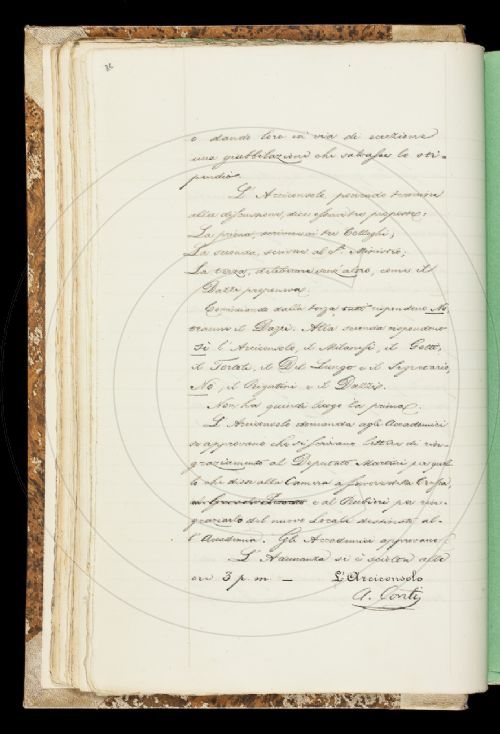 e dando loro in via di eccezione
una giubbilazione che salvasse lo sti-
pendio.
L'Arciconsolo ponendo termine
alla discussione, dice esservi tre proposte:
La prima, scrivere ai tre Colleghi;
La seconda, scrivere al S. Ministro;
La terza, deliberare senz'altro, come il
Dazzi proponeva.
Cominciando dalla terza, tutti rispondono No
tranne il Dazzi. Alla seconda rispondono
Sì l'Arciconsolo, il Milanesi, il Gotti,
il Tortoli, il Del Lungo e il Segretario,
No, il Rigutini e il Dazzi.
Non ha quindi luogo la prima.
L'Arciconsolo domanda agli Accademici
se approvano che si scrivano lettere di rin-
graziamento al Deputato Martini per quel-
lo che disse alla Camera a favore della Crusca,
e al Rubieri per rin-
graziarlo del nuovo locale destinato al-
l'Accademia. Gli Accademici approvano.
L'Adunanza si è sciolta alle
ore 3 p. m. — L'Arciconsolo
A. Conti